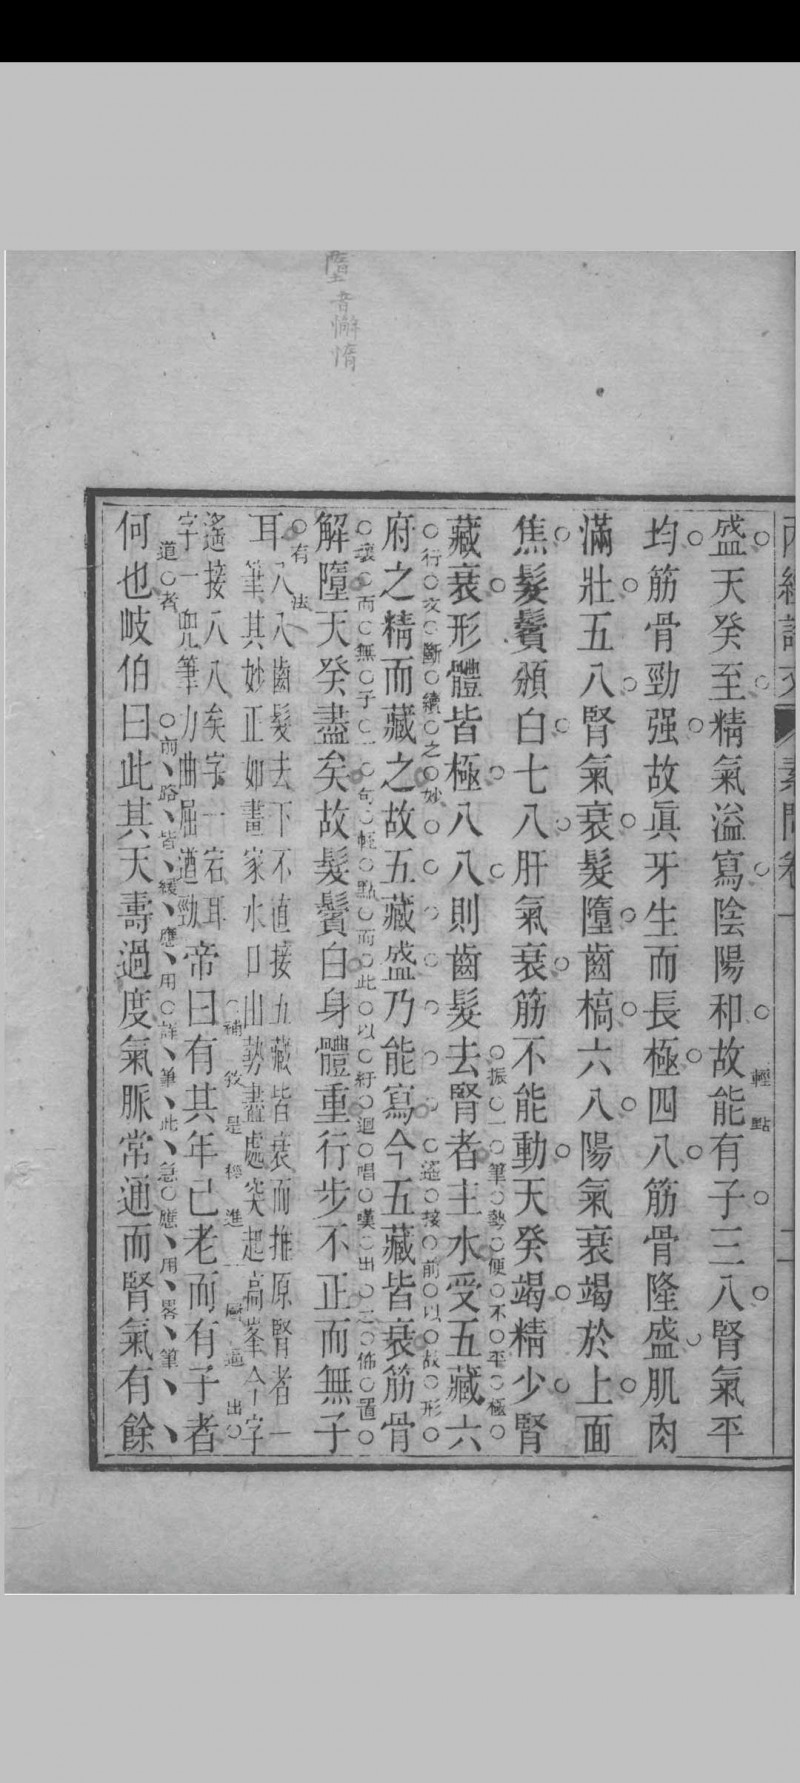 音懈惰
素問卷一
盛天癸至精氣溢寫陰陽和故能有子三八腎氣平
輕點
均筋骨勁强故眞牙生而長極四八筋骨隆盛肌肉
滿壯五八腎氣衰髮墮齒槁六八陽氣衰竭於上面
焦髮鬢頒白七八肝氣衰筋不能動天癸竭精少腎
振一筆勢便不平極
藏衰形體皆極八八則齒髮去腎者主水受五藏六
行文斷續之妙遙接前以故形
府之精而藏之故五藏盛乃能寫今五藏皆衰筋骨
壞而無子一句輕點而此以紆迴唱嘆出之佈置
解墮天癸盡矣故髮鬢白身體重行步不正而無子
有法
耳
八八齒髮去下不直接五藏皆衰而推原腎者一
筆其妙正如畫家水口山勢盡處突起高峯今字
補敘是
進一層逼出
遙接八八矣字一宕耳
字一兜筆力曲屈遒勁
帝曰有其年已老而有子者
道者前路皆緩應用詳筆此急應用畧筆
何也岐伯曰此其天壽過度氣脈常通而腎氣有餘